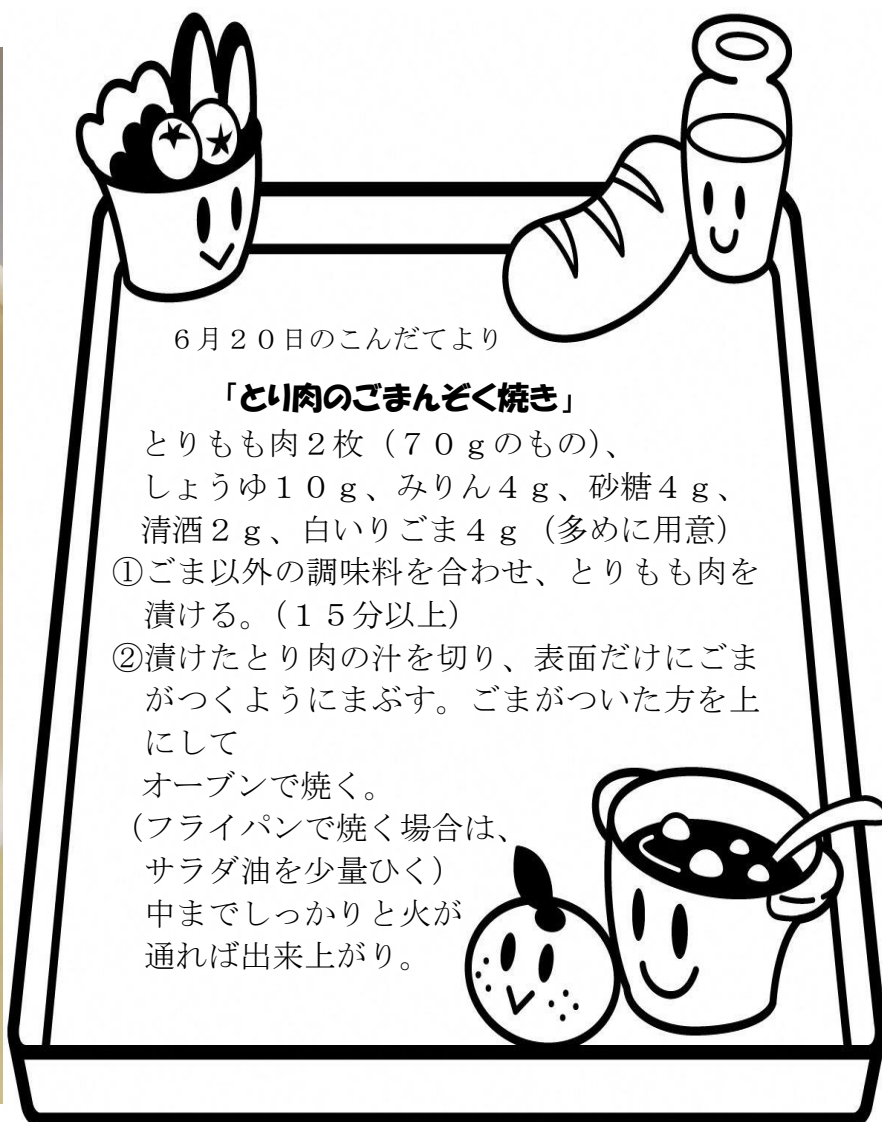 ６月２０日のこんだてより
「とり肉のごまんぞく焼き」
とりもも肉２枚（７０ｇのもの）、
しょうゆ１０ｇ、みりん４ｇ、砂糖４ｇ、
清酒２ｇ、白いりごま４ｇ（多めに用意）
①ごま以外の調味料を合わせ、とりもも肉を
漬ける。（１５分以上）
②漬けたとり肉の汁を切り、表面だけにごま
がつくようにまぶす。ごまがついた方を上
にして
オーブンで焼く。
（フライパンで焼く場合は、
サラダ油を少量ひく）
中までしっかりと火が
通れば出来上がり。